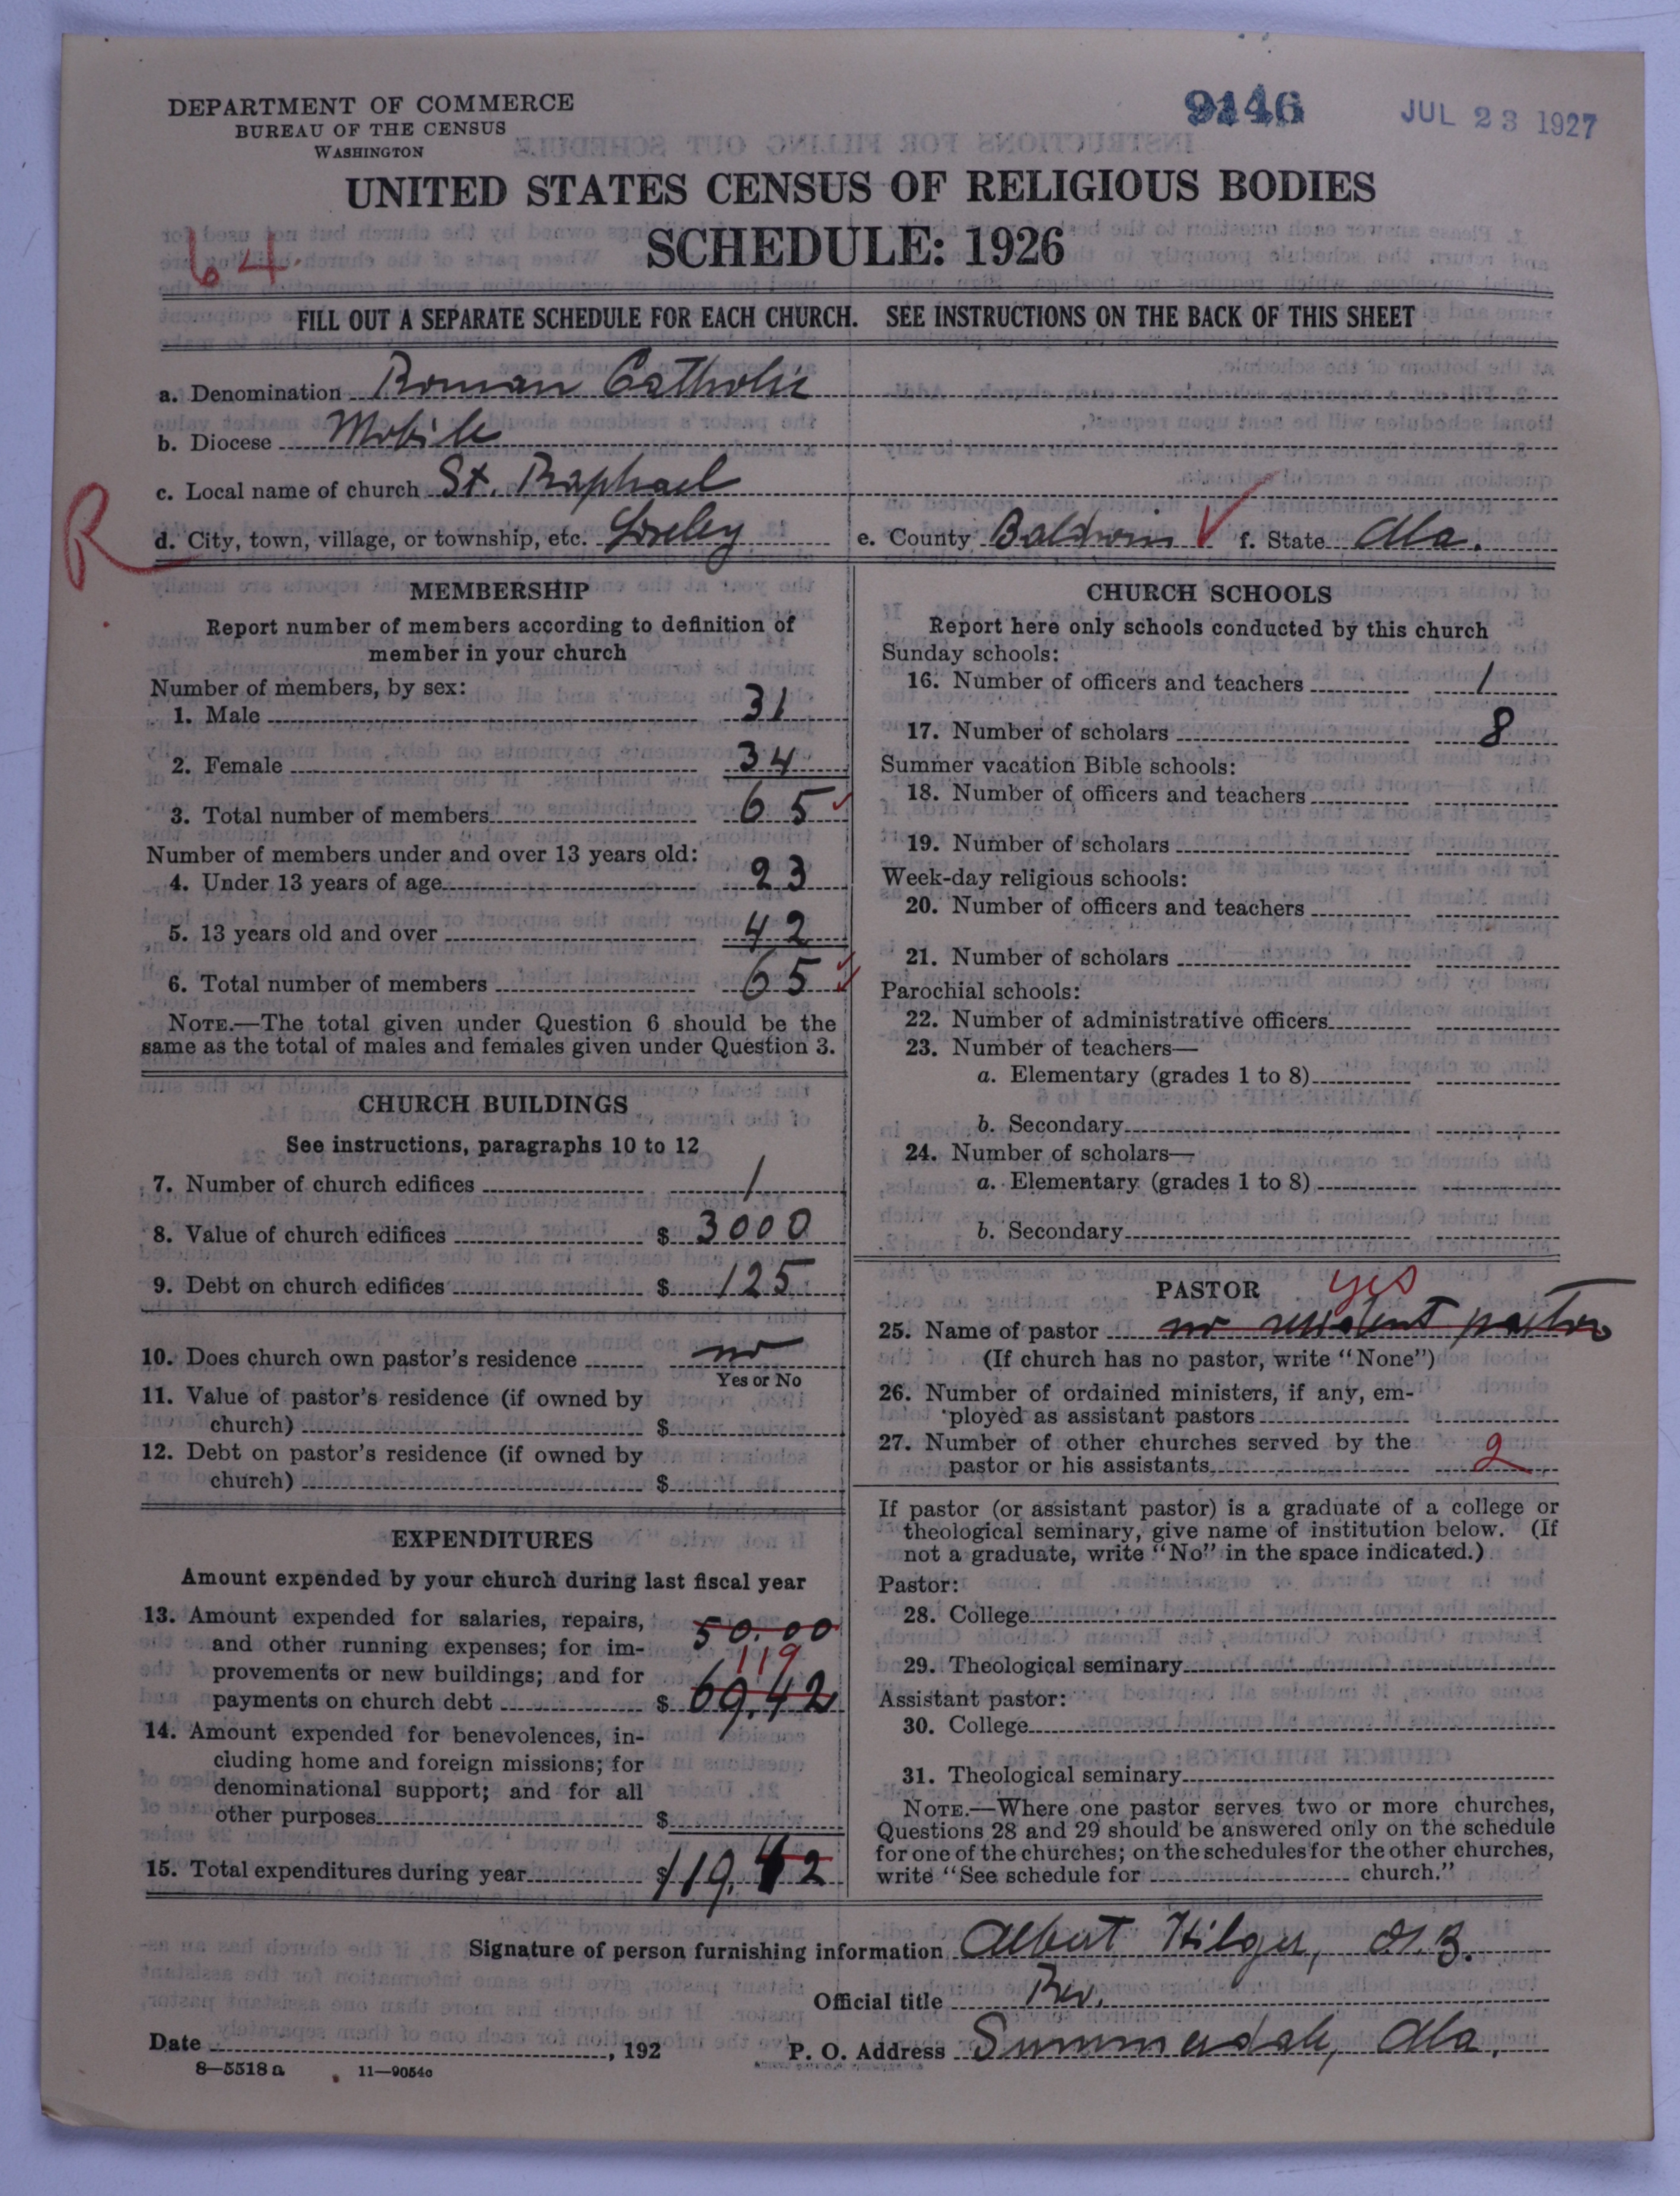 DEPARTMENT OF COMMERCE
BUREAU OF THE CENSUS
WASHINGTON
9146
JUL 23 1927
UNITED STATES CENSUS OF RELIGIOUS BODIES
SCHEDULE: 1926
64
FILL OUT A SEPARATE SCHEDULE FOR EACH CHURCH. SEE INSTRUCTIONS ON THE BACK OF THIS SHEET
a. Denomination Roman Catholic
b. Diocese Mobile
c. Local name of church St. Raphael
R
d. City, town, village, or township, etc. Loxley e. County Baldwin f. State Ala.
MEMBERSHIP
Report number of members according to definition of
member in your church
Number of members, by sex:
1. Male 31
2. Female 34
3. Total number of members 65
Number of members under and over 13 years old:
4. Under 13 years of age 23
5. 13 years old and over 42
6. Total number of members 65
NOTE.—The total given under Question 6 should be the
same as the total of males and females given under Question 3.
CHURCH BUILDINGS
See instructions, paragraphs 10 to 12
7. Number of church edifices 1
8. Value of church edifices $ 3000
9. Debt on church edifices $ 125
10. Does church own pastor's residence no
Yes or No
11. Value of pastor's residence (if owned by
church) $
12. Debt on pastor's residence (if owned by
church) $
EXPENDITURES
Amount expended by your church during last fiscal year
13. Amount expended for salaries, repairs, 50.00
and other running expenses; for im-
119
provements or new buildings; and for
payments on church debt $ 69.42
14. Amount expended for benevolences, in-
cluding home and foreign missions; for
denominational support; and for all
other purposes $
15. Total expenditures during year $ 119.42
CHURCH SCHOOLS
Report here only schools conducted by this church
Sunday schools:
16. Number of officers and teachers 1
17. Number of scholars 8
Summer vacation Bible schools:
18. Number of officers and teachers
19. Number of scholars
Week-day religious schools:
20. Number of officers and teachers
21. Number of scholars
Parochial schools:
22. Number of administrative officers
23. Number of teachers—
a. Elementary (grades 1 to 8)
b. Secondary
24. Number of scholars—
a. Elementary (grades 1 to 8)
b. Secondary
PASTOR yes
25. Name of pastor no resident pastor
(If church has no pastor, write "None")
26. Number of ordained ministers, if any, em-
ployed as assistant pastors
27. Number of other churches served by the
pastor or his assistants 2
If pastor (or assistant pastor) is a graduate of a college or
theological seminary, give name of institution below. (If
not a graduate, write "No" in the space indicated.)
Pastor:
28. College
29. Theological seminary
Assistant pastor:
30. College
31. Theological seminary
NOTE.—Where one pastor serves two or more churches,
Questions 28 and 29 should be answered only on the schedule
for one of the churches; on the schedules for the other churches,
write "See schedule for church."
Signature of person furnishing information Albert Hilger,
Official title Rev.
Date , 192 P. O. Address Summerdale, Ala.
8—5518 a 11—9054c